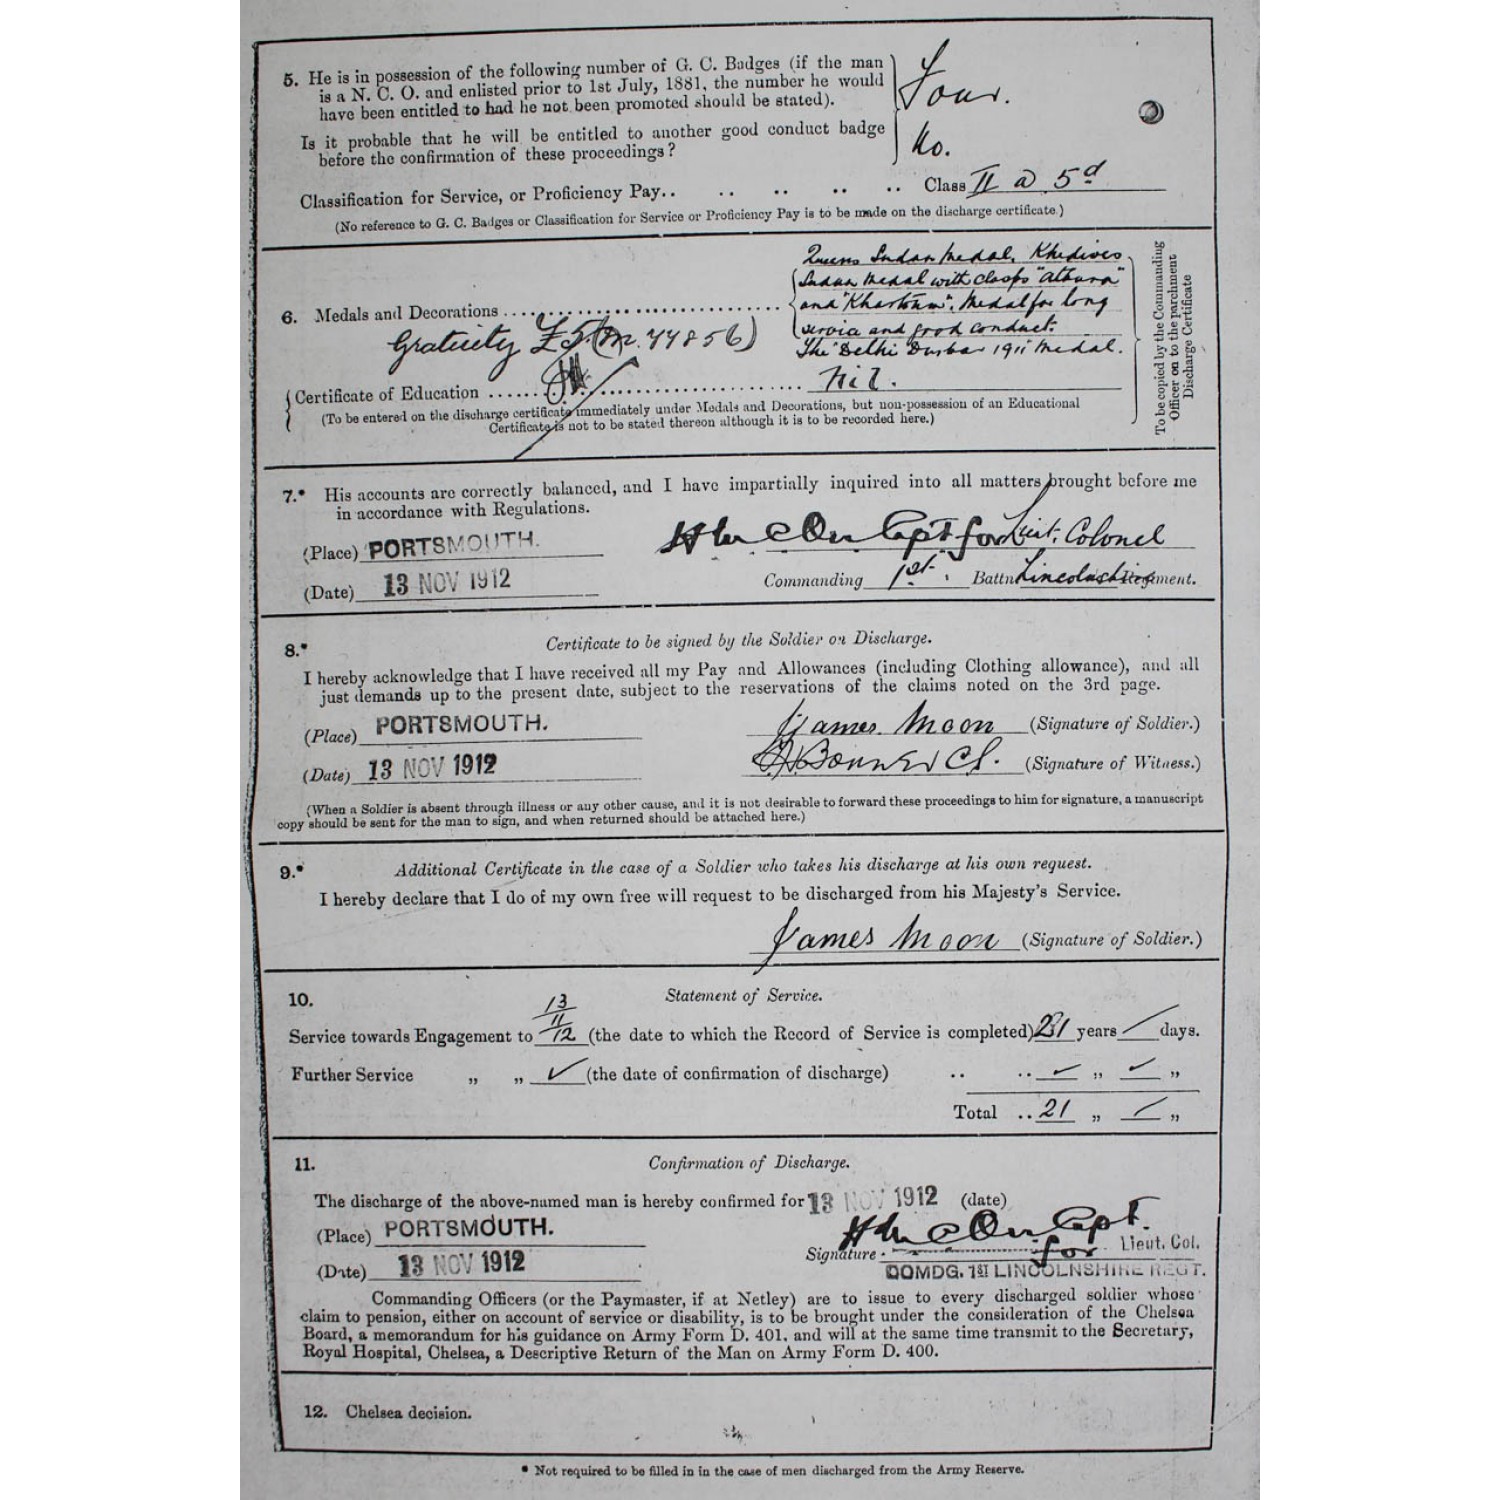 5. He is in possession of the following number of G. C. Badges (if the man
is a N. C. O. and enlisted prior to 1st July, 1881, the number he would
have been entitled to had he not been promoted should be stated).
Four.
Is it probable that he will be entitled to another good conduct badge
before the confirmation of these proceedings?
No.
Classification for Service, or Proficiency Pay.. .. .. .. .. Class II @ 5d
(No reference to G. C. Badges or Classification for Service or Proficiency Pay is to be made on the discharge certificate.)
6. Medals and Decorations
Queens Sudan Medal, Khedives
Sudan Medal with clasps "Atbara"
and "Khartoum". Medal for long
service and good conduct.
The "Delhi Durbar 1911" Medal.
Gratuity £5 (m. 44856)
Certificate of Education Nil.
(To be entered on the discharge certificate immediately under Medals and Decorations, but non-possession of an Educational
Certificate is not to be stated thereon although it is to be recorded here.)
To be copied by the Commanding
Officer on to the parchment
Discharge Certificate
7.* His accounts are correctly balanced, and I have impartially inquired into all matters brought before me
in accordance with Regulations.
(Place) PORTSMOUTH.
Capt for Lieut. Colonel
(Date) 13 NOV 1912
Commanding 1st. Battn Lincolnshire Regiment.
8.* Certificate to be signed by the Soldier on Discharge.
I hereby acknowledge that I have received all my Pay and Allowances (including Clothing allowance), and all
just demands up to the present date, subject to the reservations of the claims noted on the 3rd page.
(Place) PORTSMOUTH.
James Moon (Signature of Soldier.)
(Date) 13 NOV 1912
Bonner (Signature of Witness.)
(When a Soldier is absent through illness or any other cause, and it is not desirable to forward these proceedings to him for signature, a manuscript
copy should be sent for the man to sign, and when returned should be attached here.)
9.* Additional Certificate in the case of a Soldier who takes his discharge at his own request.
I hereby declare that I do of my own free will request to be discharged from his Majesty's Service.
James Moon (Signature of Soldier.)
10. Statement of Service.
Service towards Engagement to 13/11/12 (the date to which the Record of Service is completed) 21 years / days.
Further Service " " ✓ (the date of confirmation of discharge) .. .. ✓ " ✓ "
Total .. 21 " / "
11. Confirmation of Discharge.
The discharge of the above-named man is hereby confirmed for 13 NOV 1912 (date)
(Place) PORTSMOUTH.
Capt.
Signature for Lieut. Col.
(Date) 13 NOV 1912
COMDG. 1ST LINCOLNSHIRE REGT.
Commanding Officers (or the Paymaster, if at Netley) are to issue to every discharged soldier whose
claim to pension, either on account of service or disability, is to be brought under the consideration of the Chelsea
Board, a memorandum for his guidance on Army Form D. 401, and will at the same time transmit to the Secretary,
Royal Hospital, Chelsea, a Descriptive Return of the Man on Army Form D. 400.
12. Chelsea decision.
* Not required to be filled in in the case of men discharged from the Army Reserve.